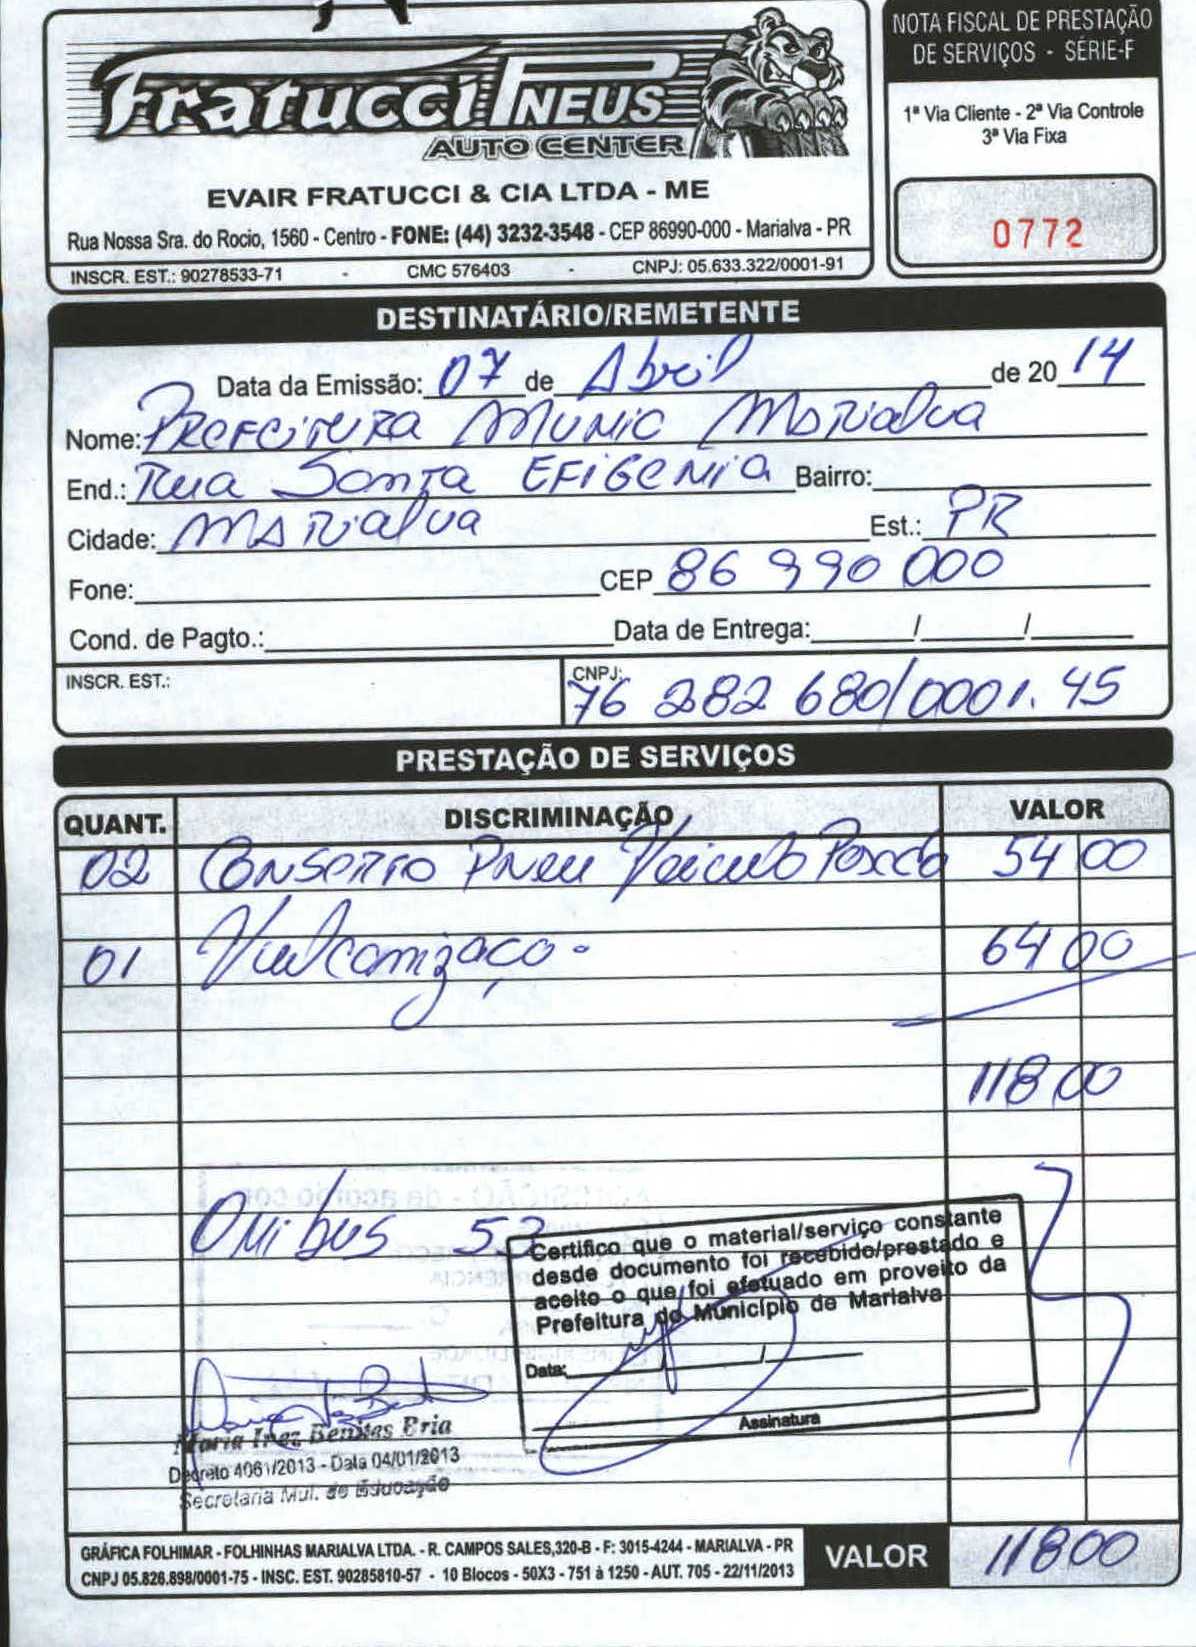 Fratucci PNEUS
AUTO CENTER
EVAIR FRATUCCI & CIA LTDA - ME
Rua Nossa Sra. do Rocio, 1560 - Centro - FONE: (44) 3232-3548 - CEP 86990-000 - Marialva - PR
INSCR. EST.: 90278533-71 - CMC 576403 - CNPJ: 05.633.322/0001-91
NOTA FISCAL DE PRESTAÇÃO
DE SERVIÇOS - SÉRIE-F
1ª Via Cliente - 2ª Via Controle
3ª Via Fixa
0772
DESTINATÁRIO/REMETENTE
Data da Emissão: 07 de Abril de 20 14
Nome: PREFEITURA MUNIC MARIALVA
End.: Rua Santa EFIGENIA Bairro:
Cidade: MARIALVA Est.: PR
Fone: CEP 86 990 000
Cond. de Pagto.: Data de Entrega: / /
INSCR. EST.: CNPJ: 76 282 680/0001.45
PRESTAÇÃO DE SERVIÇOS
QUANT. DISCRIMINAÇÃO VALOR
02 Conserto Pneu Veiculo 54 00
01 Vulcanizaço- 64 00
118 00
Onibus 52
Certifico que o material/serviço constante
desde documento foi recebido/prestado e
aceito o que foi efetuado em proveito da
Prefeitura do Município de Marialva
Data: / /
Assinatura
Maria Inez Benites Eria
Decreto 4061/2013 - Data 04/01/2013
Secretaria Mul. de Educação
GRÁFICA FOLHIMAR - FOLHINHAS MARIALVA LTDA. - R. CAMPOS SALES,320-B - F: 3015-4244 - MARIALVA - PR
CNPJ 05.826.898/0001-75 - INSC. EST. 90285810-57 - 10 Blocos - 50X3 - 751 à 1250 - AUT. 705 - 22/11/2013
VALOR 118 00